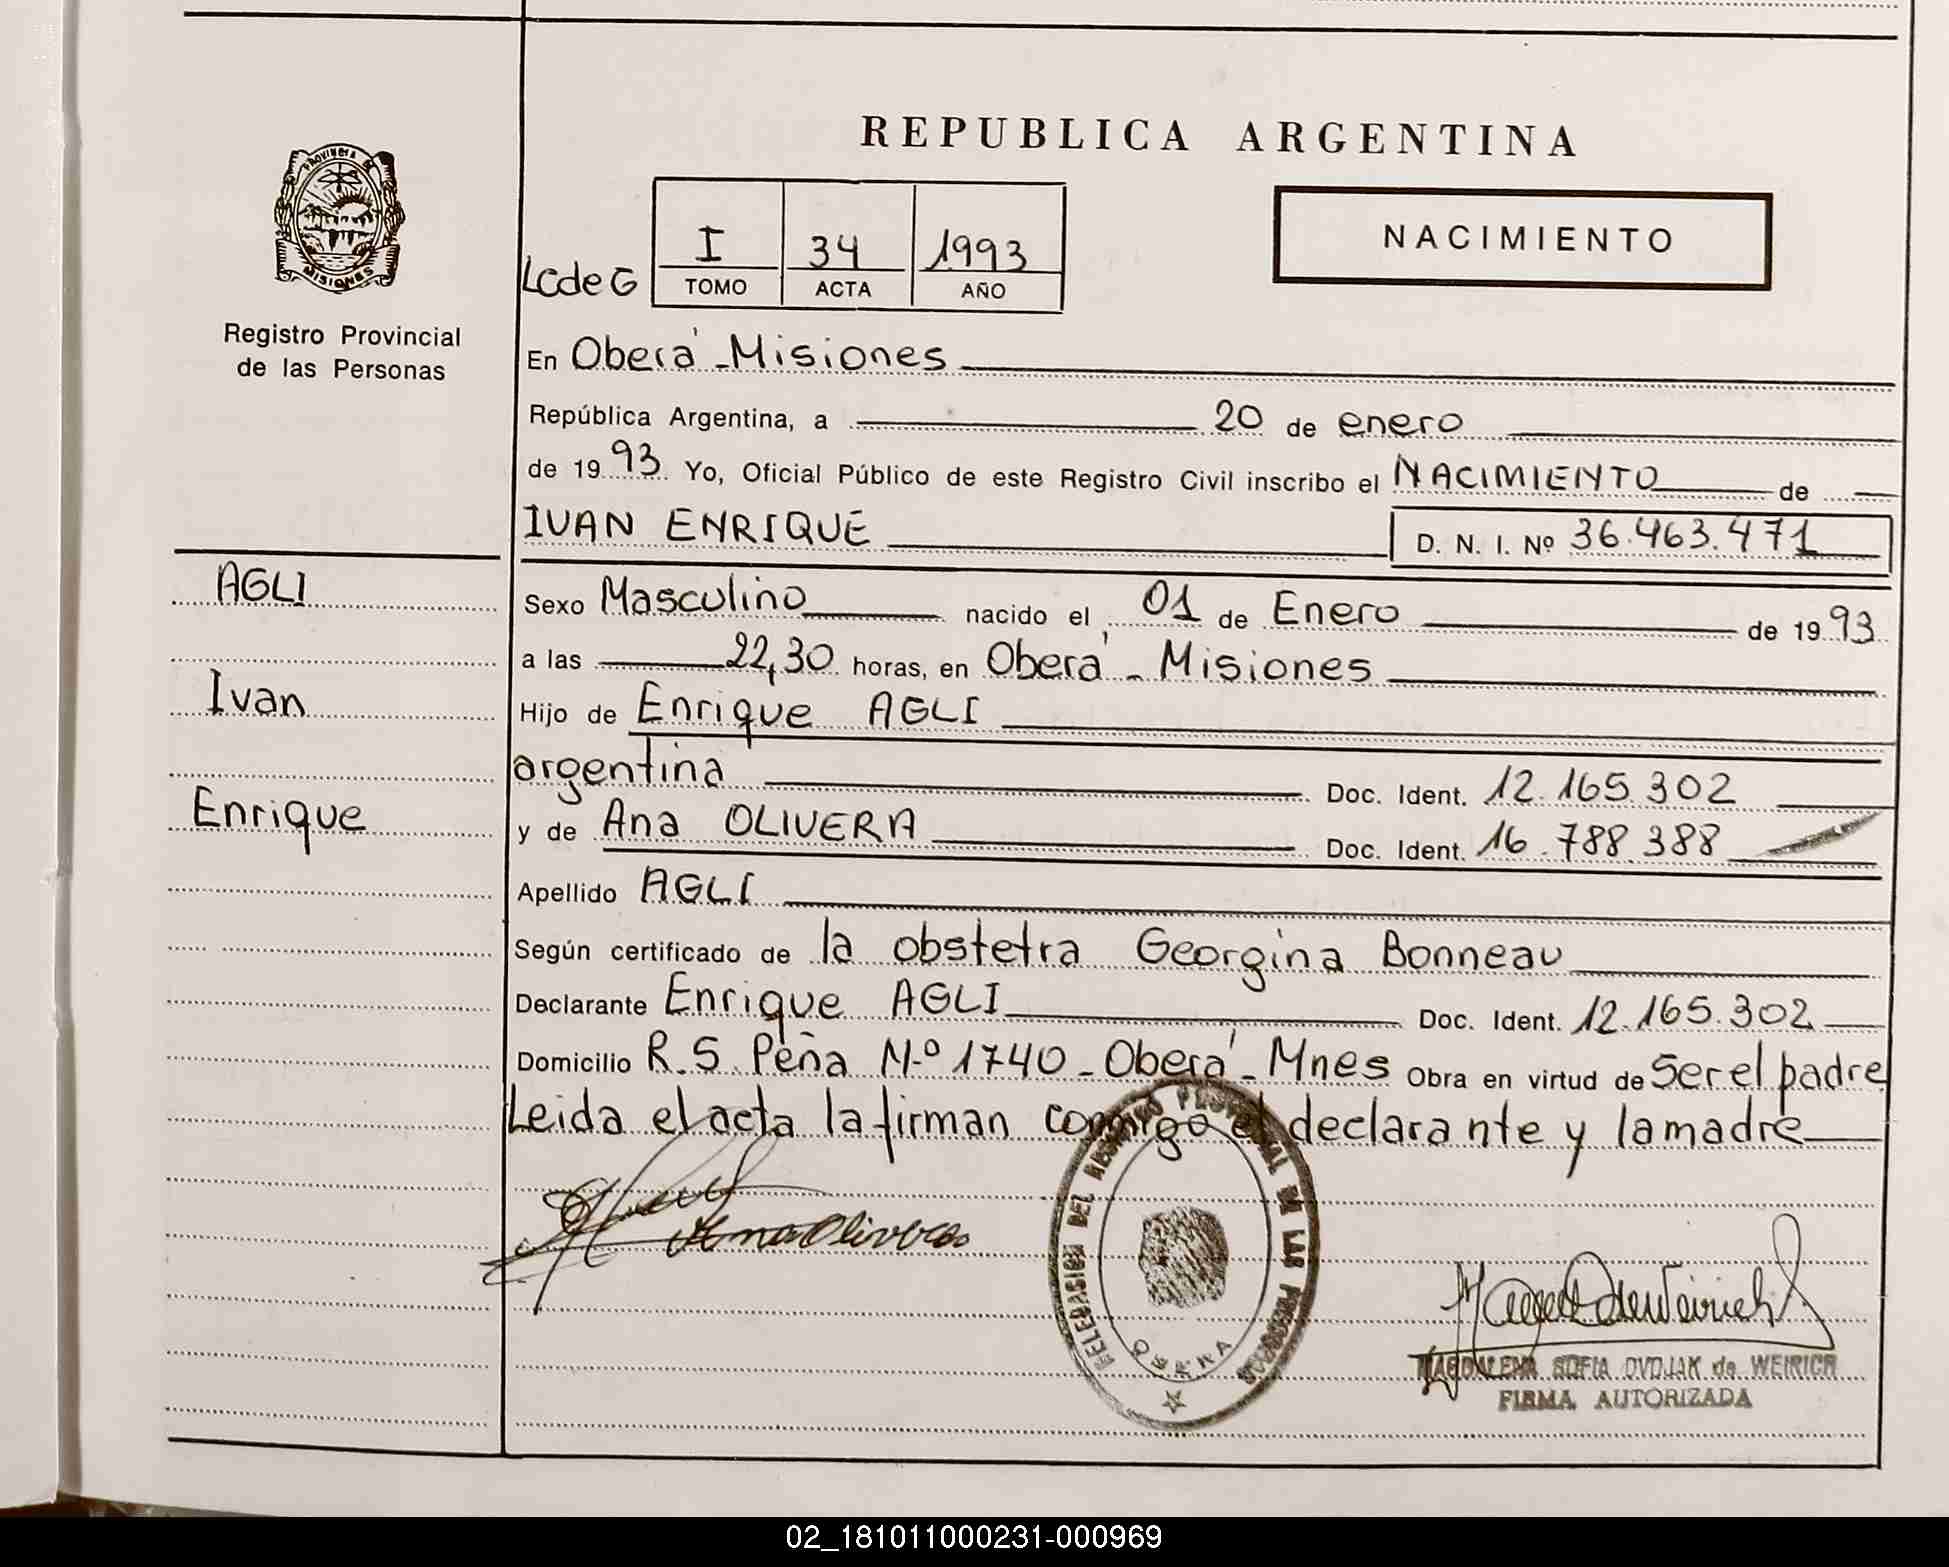 REPUBLICA ARGENTINA
PROVINCIA DE
MISIONES
Registro Provincial
de las Personas
LcdeG
I 34 1993
TOMO ACTA AÑO
NACIMIENTO
En Oberá - Misiones
República Argentina, a 20 de enero
de 1993 Yo, Oficial Público de este Registro Civil inscribo el NACIMIENTO de
IVAN ENRIQUE D. N. I. Nº 36.463.471
AGLI
Ivan
Enrique
Sexo Masculino nacido el 01 de Enero de 1993
a las 22,30 horas, en Oberá - Misiones
Hijo de Enrique AGLI
argentina Doc. Ident. 12.165.302
y de Ana OLIVERA Doc. Ident. 16.788.388
Apellido AGLI
Según certificado de la obstetra Georgina Bonneau
Declarante Enrique AGLI Doc. Ident. 12.165.302
Domicilio R.S. Peña N.º 1740 - Oberá - Mnes Obra en virtud de Ser el padre
Leida el acta la firman conmigo el declarante y la madre
Ana Olivera
DELEGACION DEL REGISTRO PROVINCIAL DE LAS PERSONAS
OBERA
MAGDALENA SOFIA DVOJAK de WEIRICH
FIRMA AUTORIZADA
02_181011000231-000969